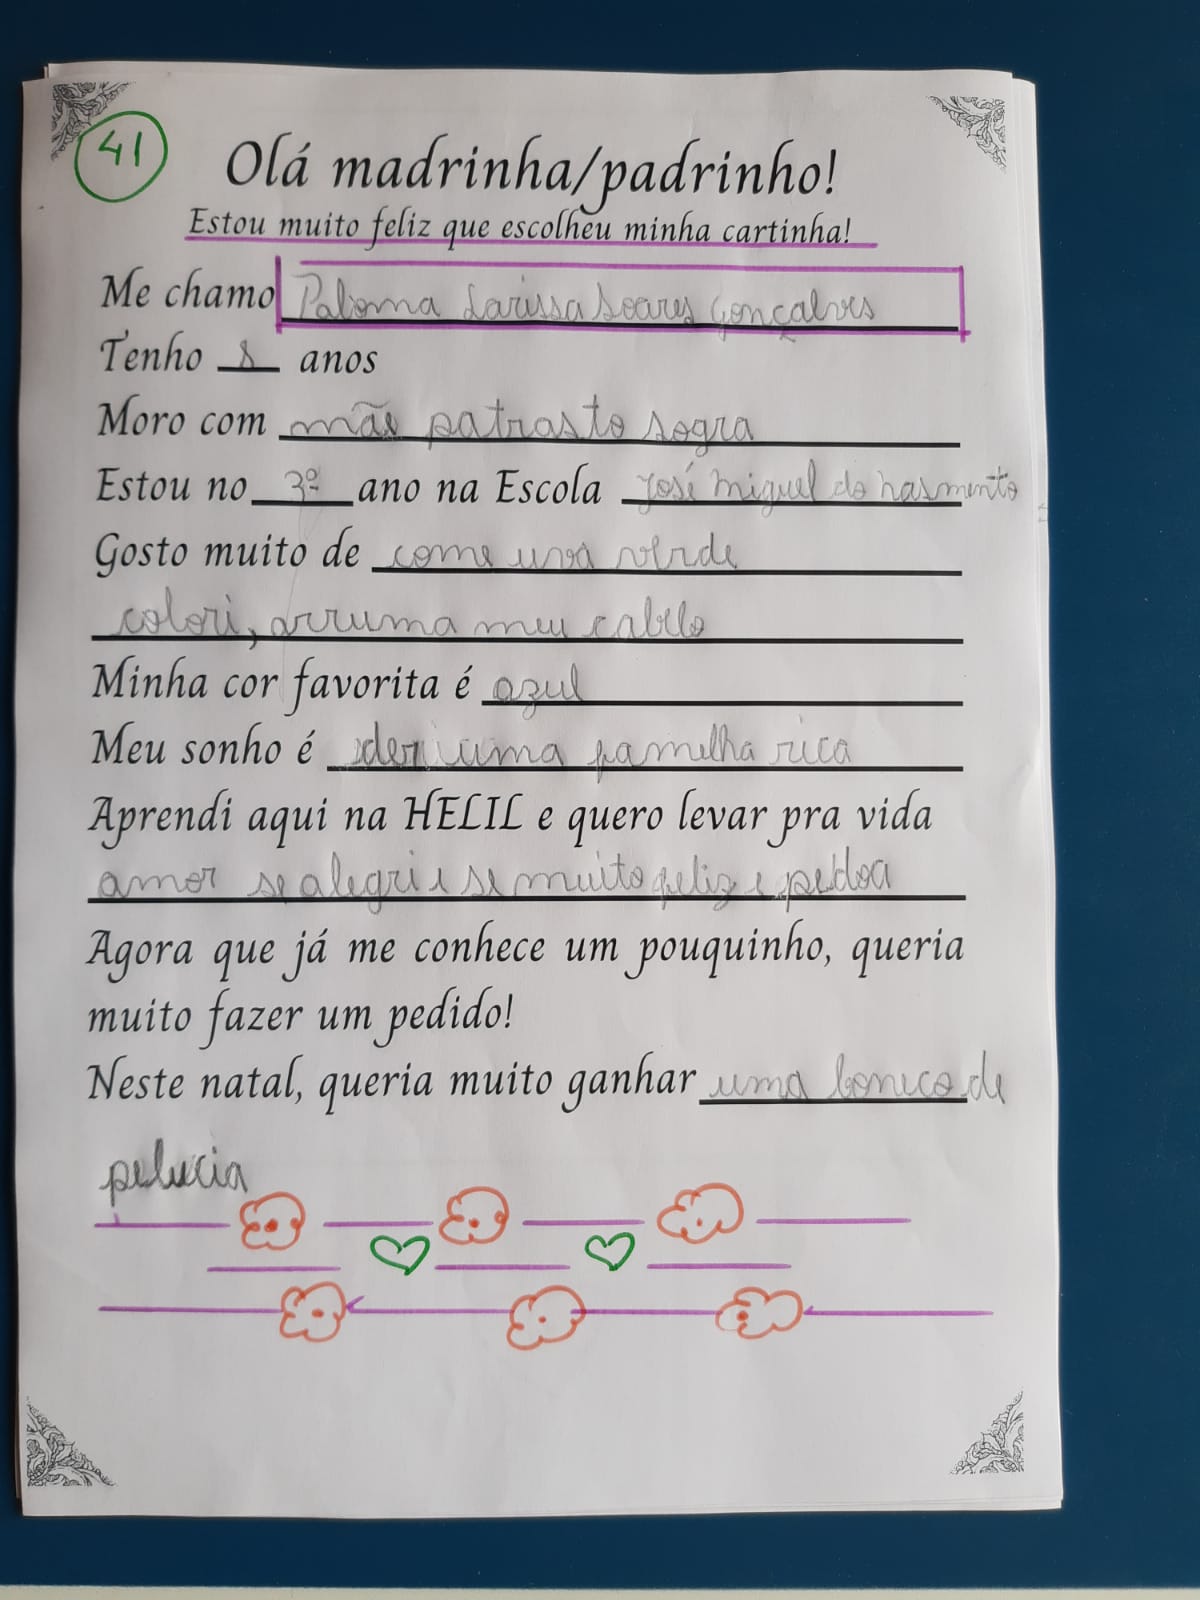 41
Olá madrinha/padrinho!
Estou muito feliz que escolheu minha cartinha!
Me chamo Paloma Larissa Soares Gonçalves
Tenho 8 anos
Moro com mãe patrasto sogra
Estou no 3º ano na Escola José Miguel do nasmento
Gosto muito de come uva verde
colori, arruma meu cabelo
Minha cor favorita é azul
Meu sonho é uma familha rica
Aprendi aqui na HELIL e quero levar pra vida
amor se alegri e se muito feliz e pedoa
Agora que já me conhece um pouquinho, queria
muito fazer um pedido!
Neste natal, queria muito ganhar uma boneco de
pelucia